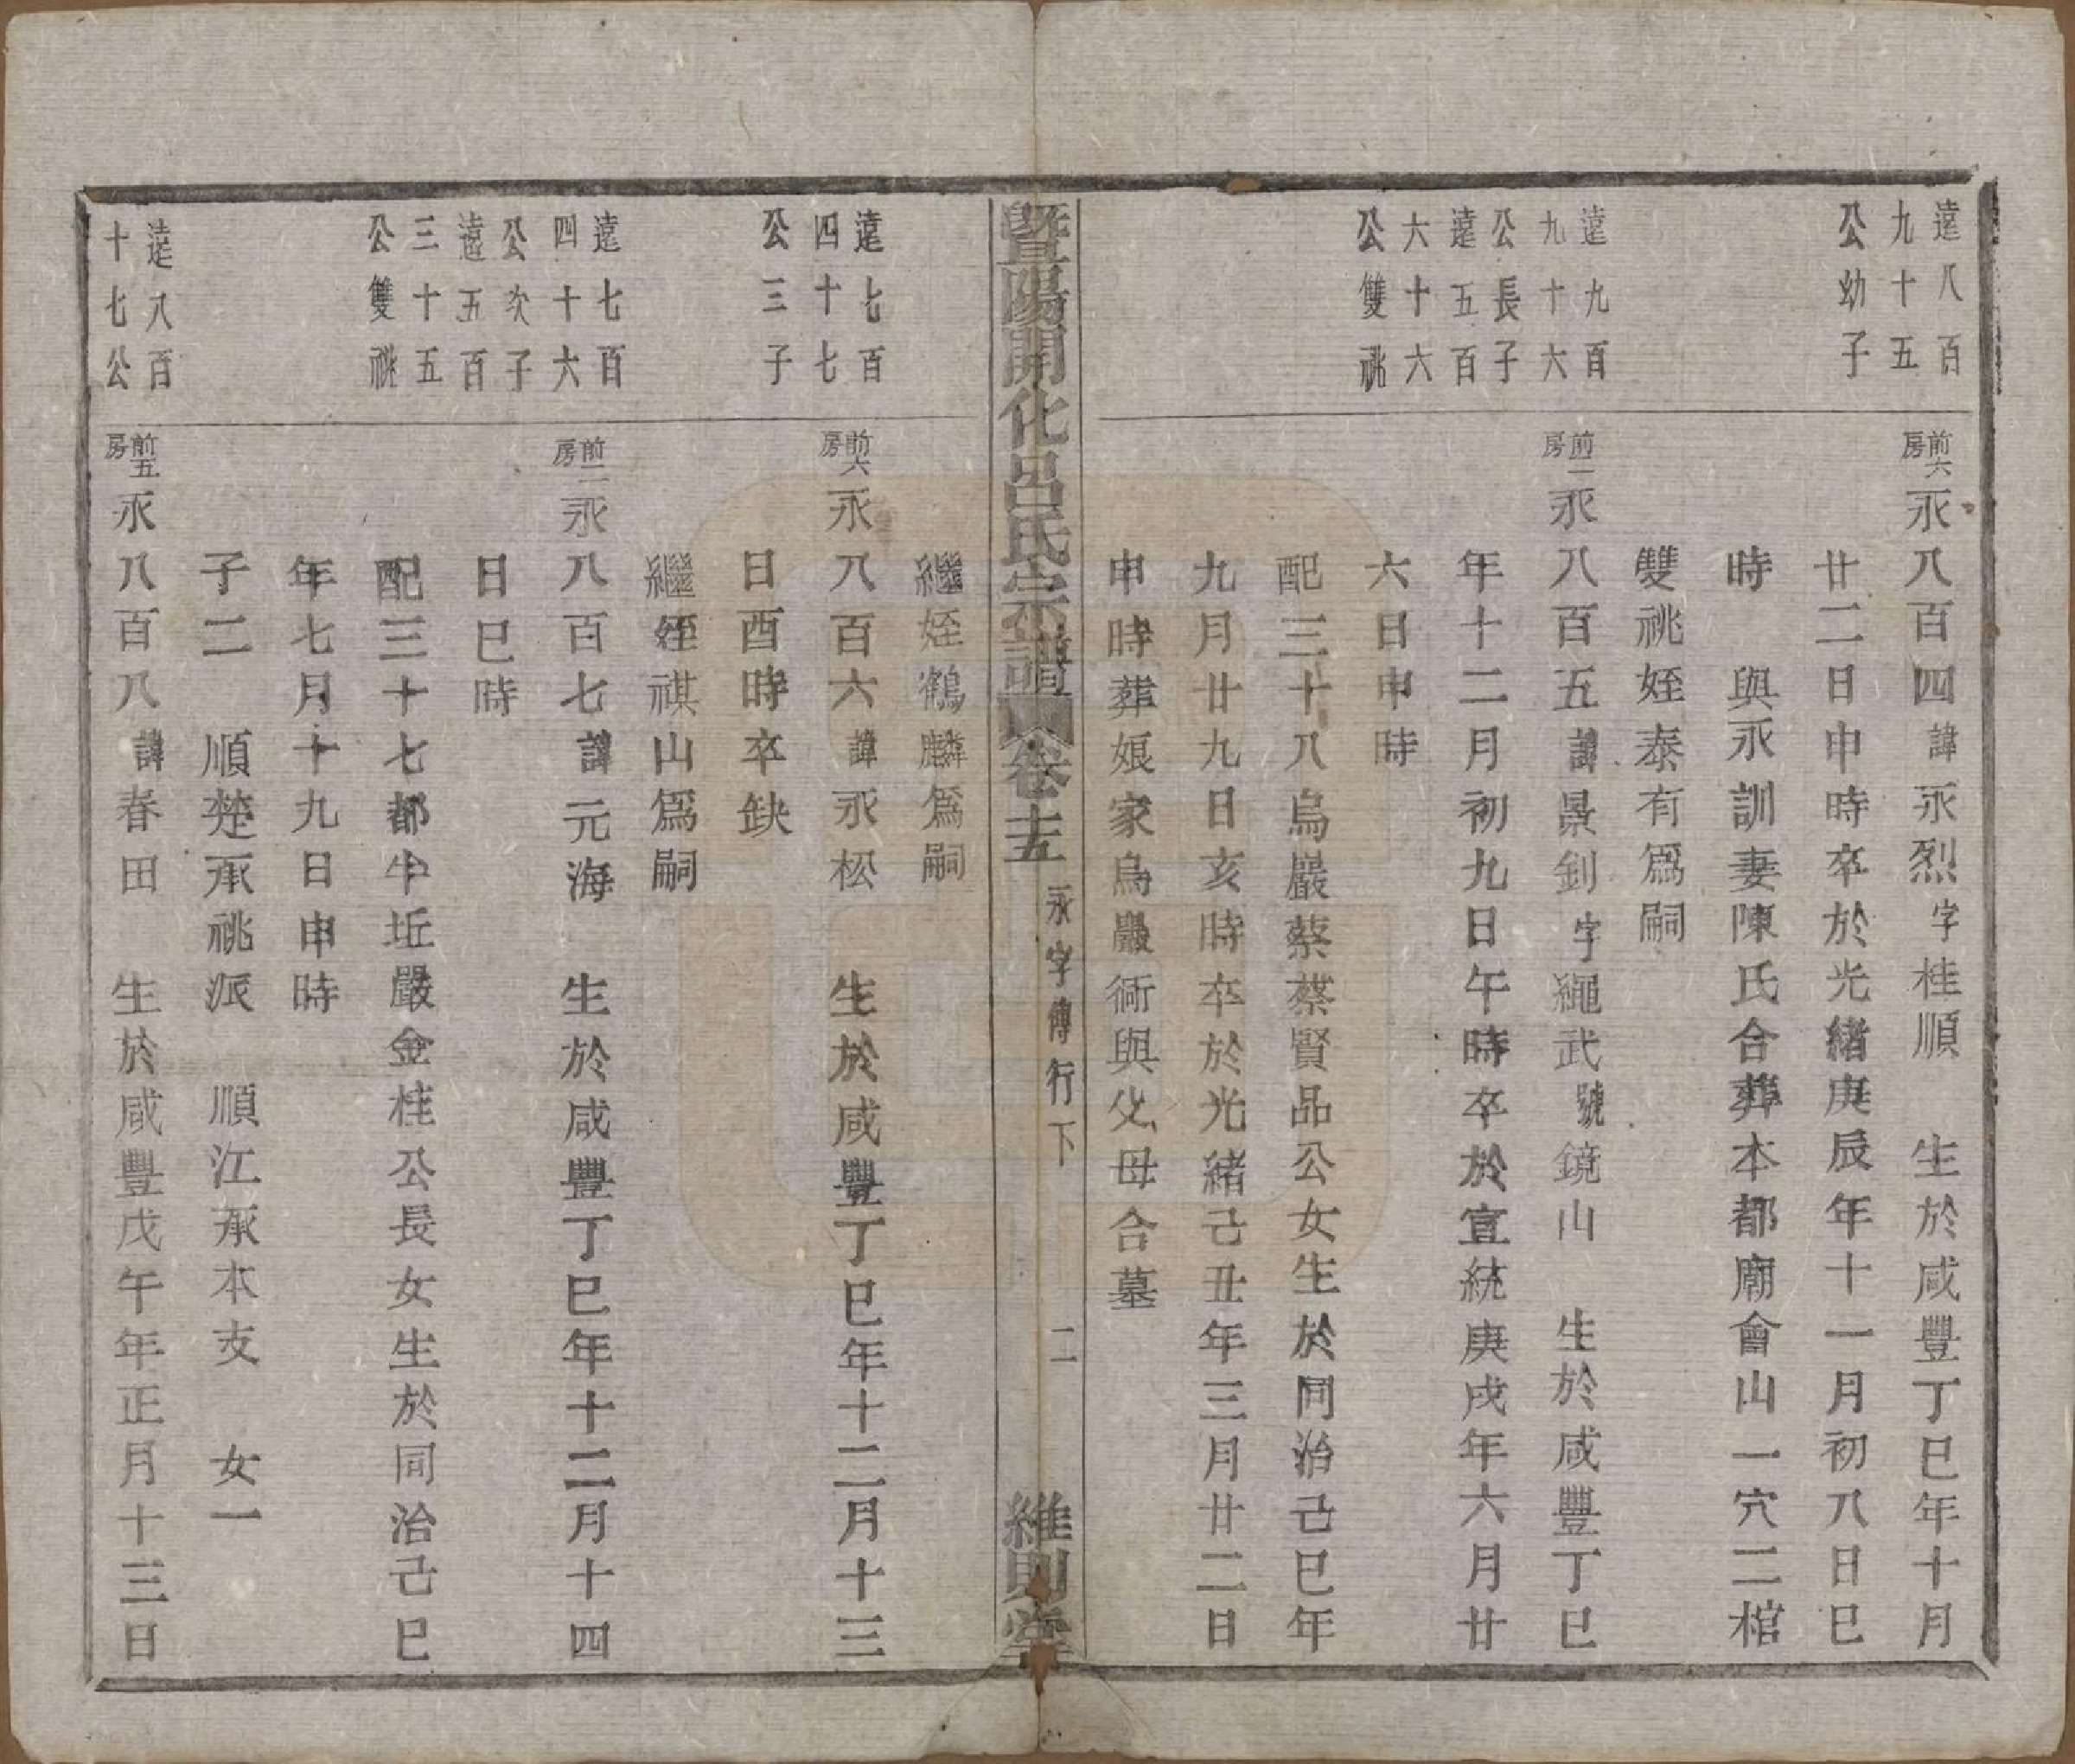 遠八百
九十五
公幼子
前六房永八百四諱永烈字桂順　生於咸豐丁巳年十月
廿二日申時卒於光緒庚辰年十一月初八日巳
時　與永訓妻陳氏合葬本都廟會山一穴二棺
雙祧姪泰有為嗣
遠九百
九十六
公長子
遠五百
六十六
公雙祧
前一房永八百五諱景釗字繩武號鏡山　生於咸豐丁巳
年十二月初九日午時卒於宣統庚戌年六月廿
六日申時
配三十八烏巖蔡蔡賢品公女生於同治己巳年
九月廿九日亥時卒於光緒己丑年三月廿二日
申時葬娘家烏巖衕與父母合墓
暨陽開化呂氏宗譜 卷十五 永字傳行下 二 維則堂
繼姪鶴麟為嗣
遠七百
四十七
公三子
前六房永八百六諱永松　生於咸豐丁巳年十二月十三
日酉時卒缺
繼姪祺山為嗣
遠七百
四十六
公次子
遠五百
三十五
公雙祧
前二房永八百七諱元海　生於咸豐丁巳年十二月十四
日巳時
配三十七都牛坵嚴金桂公長女生於同治己巳
年七月十九日申時
子二　順楚承祧派　順江承本支　女一
遠八百
十七公
前五房永八百八諱春田　生於咸豐戊午年正月十三日